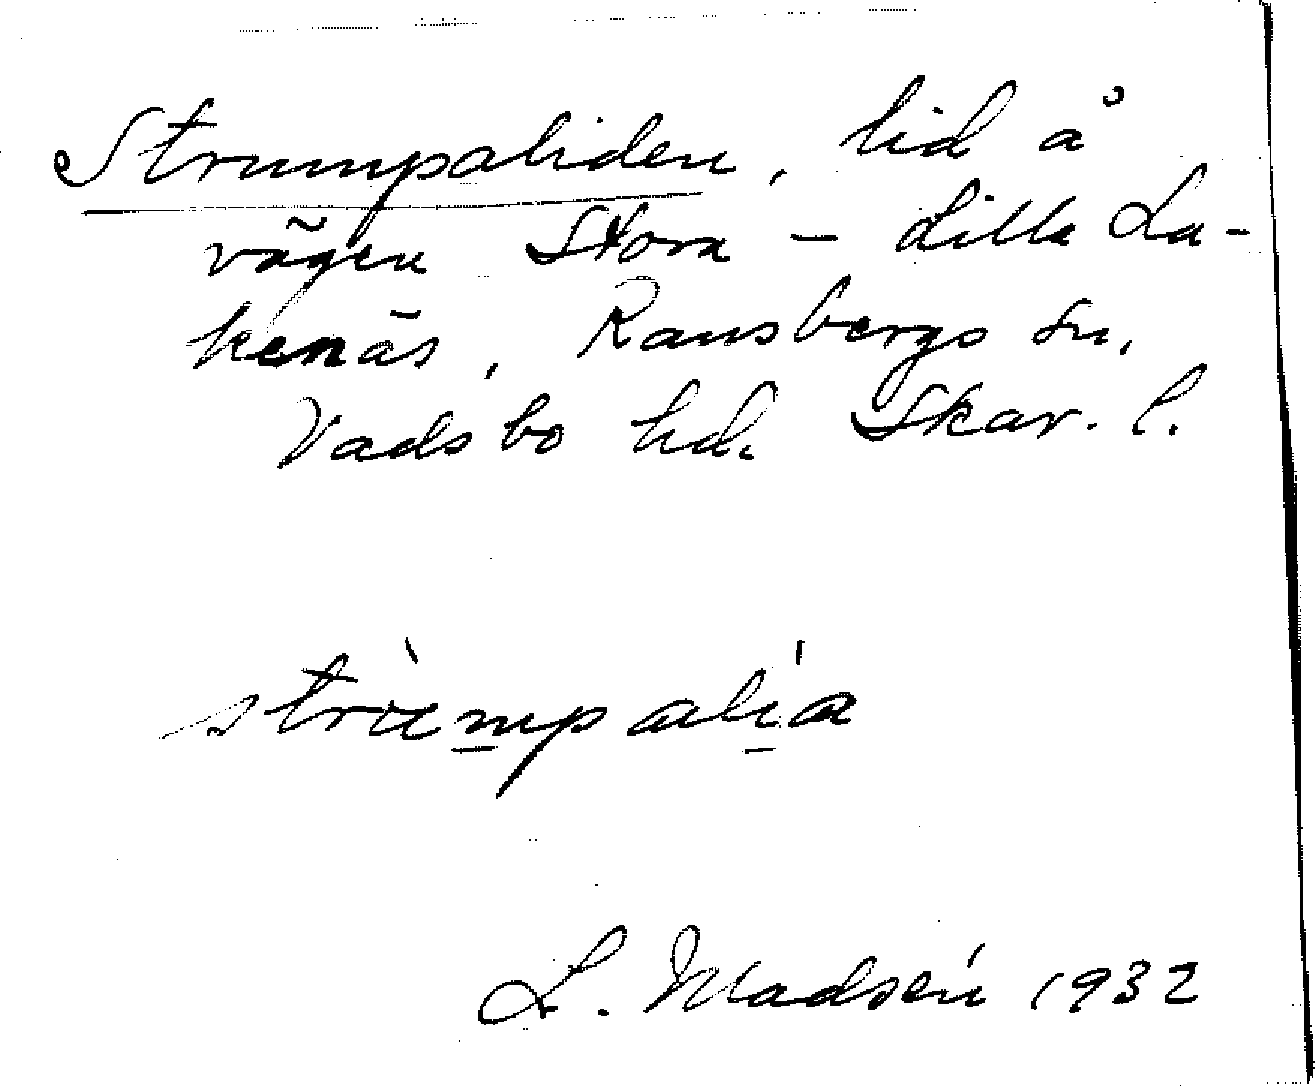 Strumpaliden, lid å
vägen Stora - Lilla La-
kenäs, Ransbergs sn,
Vadsbo hd. Skar. l.
strùmpalía
L. Madsén 1932